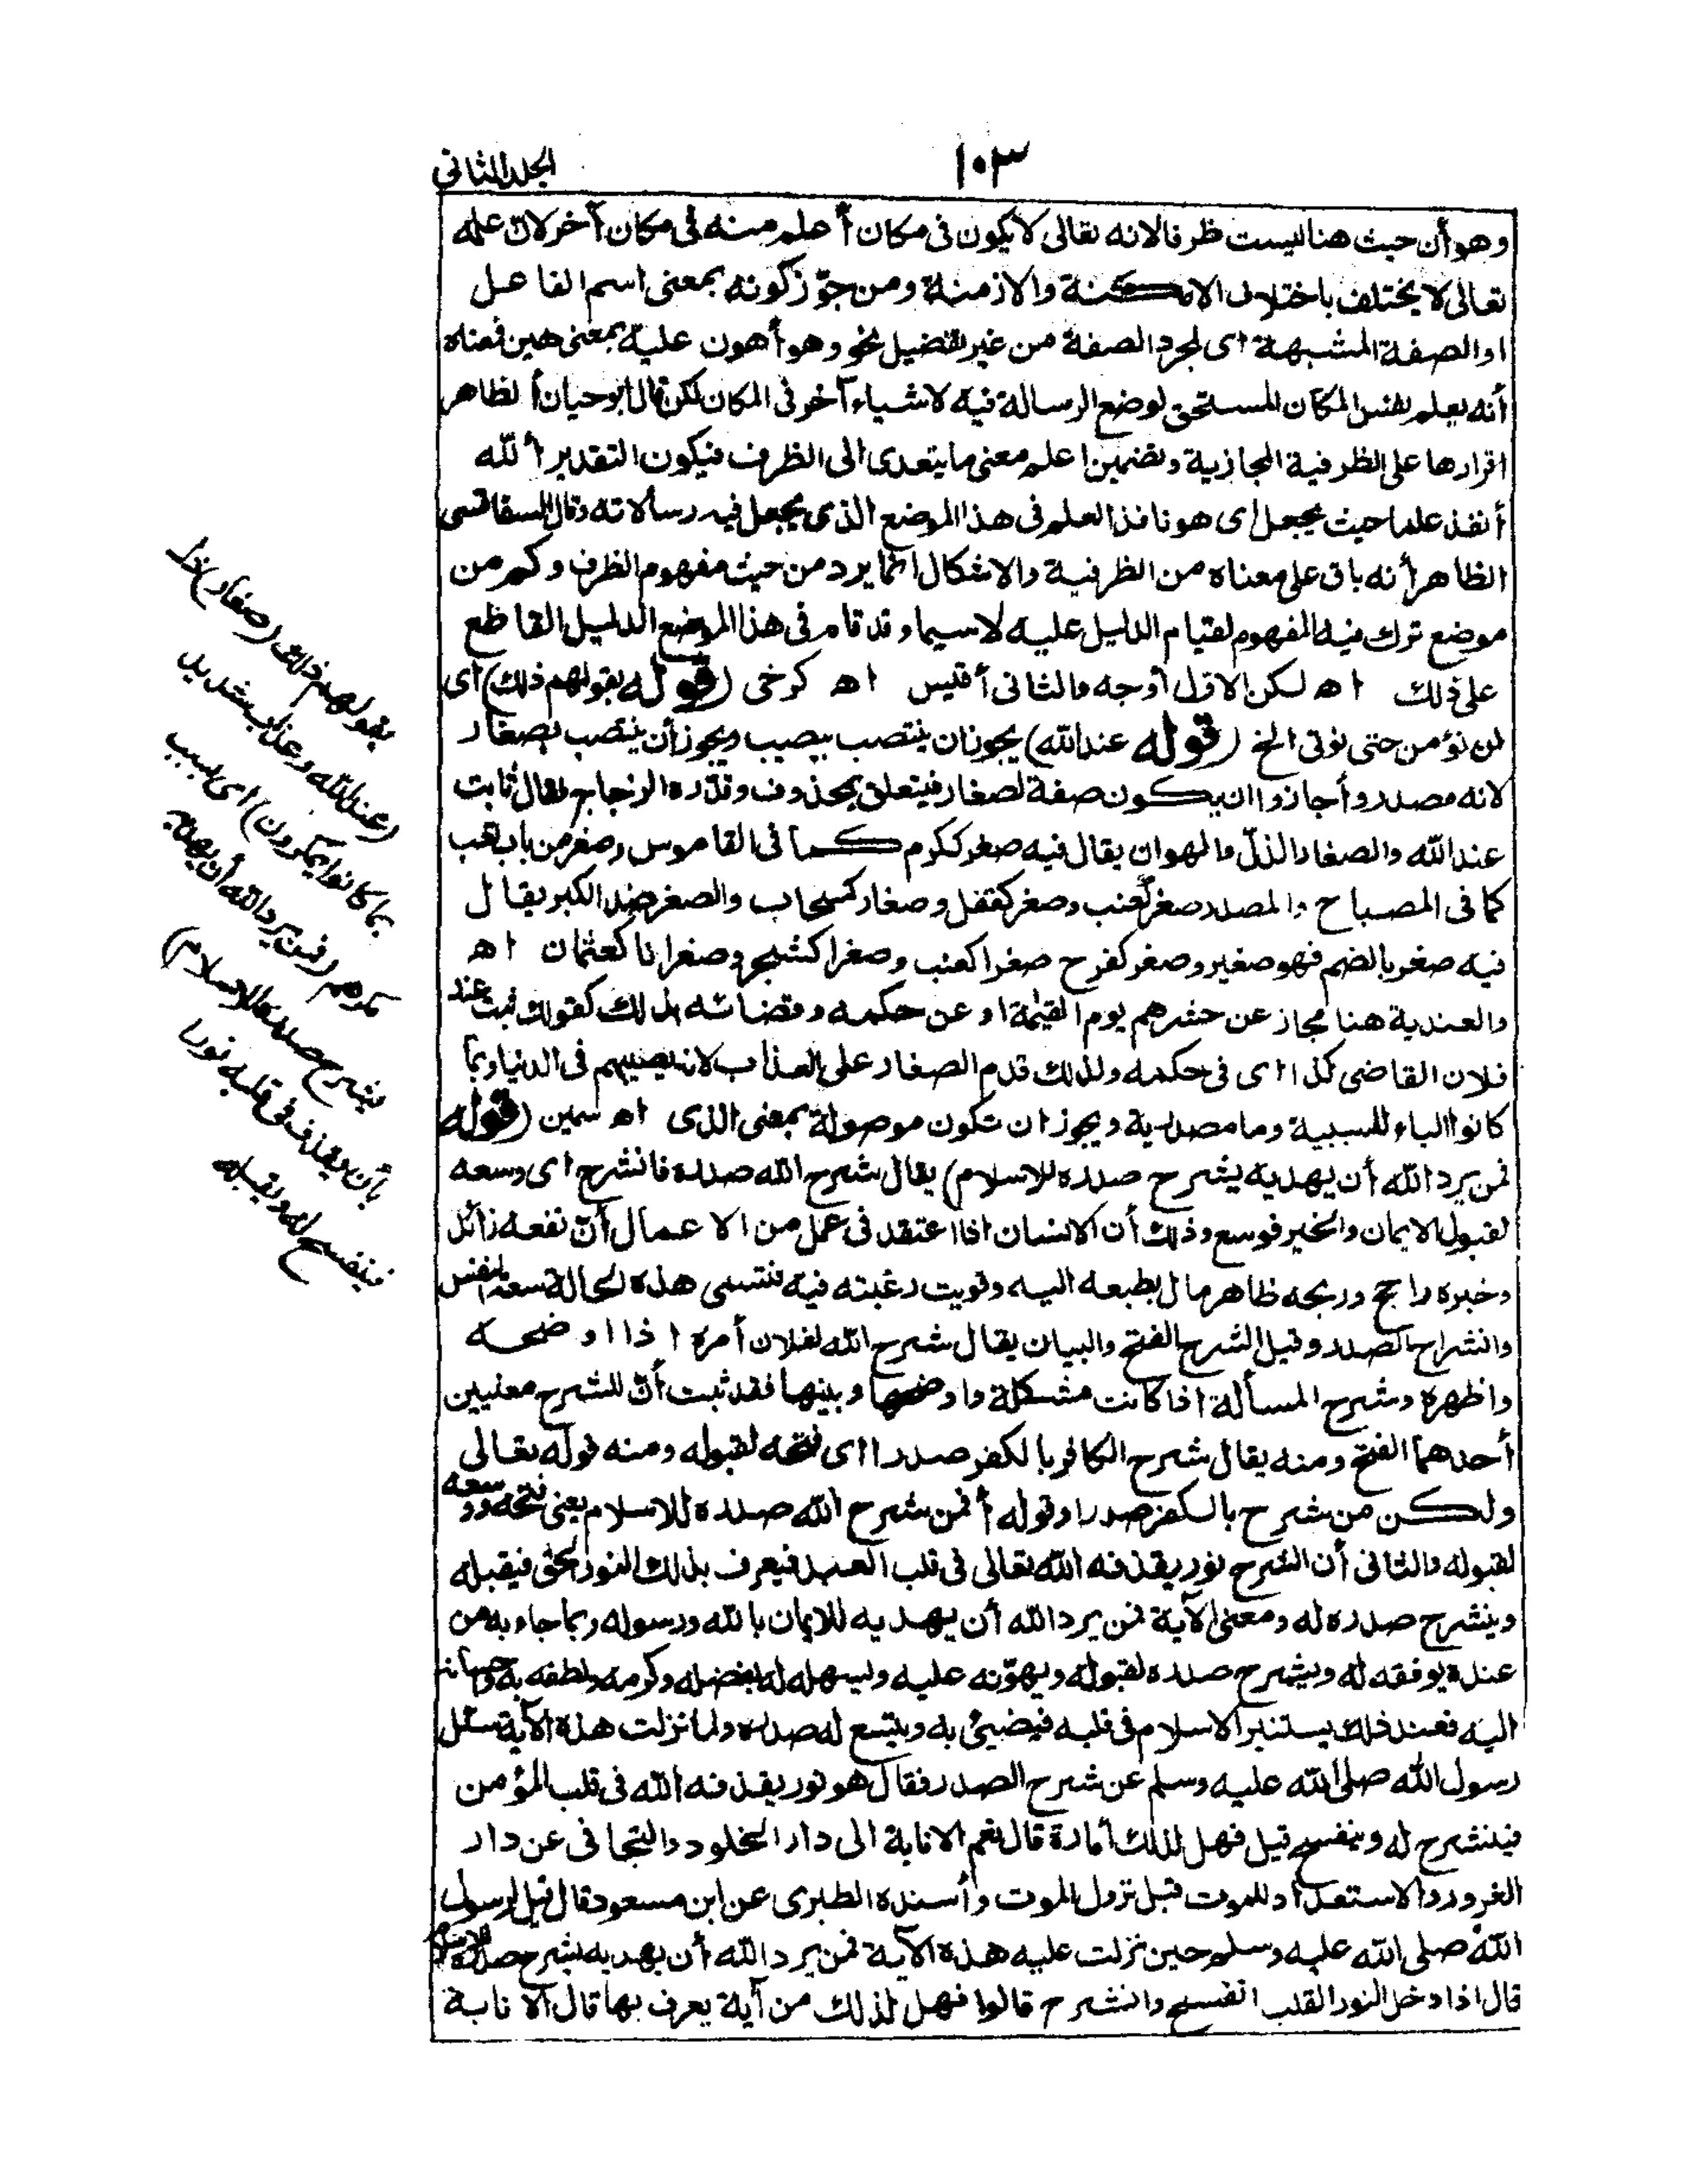 ١٠٣
الجلد الثانى
وهو أن حيث هنا ليست ظرفا لانه تعالى لا يكون فى مكان أعلم منه فى مكان آخر لان علمه
تعالى لا يختلف باختلاف الامكنة والازمنة ومن جوّز كونه بمعنى اسم الفاعل
او الصفة المشبهة اى لمجرد الصفة من غير تفضيل نحو وهو أهون عليه بمعنى هين فمعناه
أنه يعلم نفس المكان المستحق لوضع الرسالة فيه لا شياء آخر فى المكان لكن قال ابو حيان الظاهر
اقرارها على الظرفية المجازية وتضمين اعلم معنى ما يتعدى الى الظرف فيكون التقدير الله
أنفذ علما حيث يجعل اى هو نافذ العلم فى هذا الموضع الذى يجعل فيه رسالاته وقال السفاقسى
الظاهر أنه باق على معناه من الظرفية والاشكال انما يرد من حيث مفهوم الظرف وكم من
موضع ترك فيه المفهوم لقيام الدليل عليه لا سيما وقد قام فى هذا الموضع الدليل القاطع
على ذلك اه لكن الاول أوجه والثانى أقيس اه كرخى (قوله بقولهم ذلك) اى
لن نؤمن حتى نوتى الخ (قوله عند الله) يجوز ان ينتصب بيصيب ويجوز أن ينتصب بصغار
لانه مصدر وأجازوا ان يكون صفة لصغار فيتعلق بمحذوف وقدره الزجاج فقال ثابت
عند الله والصغار الذلّ والهوان يقال فيه صغر ككرم كما فى القاموس وصغر من باب تعب
كما فى المصباح والمصدر صغر كعنب وصغر كقفل وصغار كسحاب والصغر ضد الكبر يقال
فيه صغر بالضم فهو صغير وصغر كفرح صغرا كعنب وصغرا كشجر وصغرانا كعثمان اه
والعندية هنا مجاز عن حشرهم يوم القيٰمة او عن حكمه وقضائه بذلك كقولك ثبت عند
فلان القاضى كذا اى فى حكمه ولذلك قدم الصغار على العذاب لانه يصيبهم فى الدنيا وبما
كانوا الباء للسببية وما مصدرية ويجوز ان تكون موصولة بمعنى الذى اه سمين (قوله
فمن يرد الله أن يهديه يشرح صدره للاسلام) يقال شرح الله صدره فانشرح اى وسعه
لقبول الايمان والخير فوسع وذلك أن الانسان اذا اعتقد فى عمل من الاعمال أنّ نفعه زائد
وخيره راجح وربحه ظاهر مال بطبعه اليه وقويت رغبته فيه فتسمى هذه الحالة سعة النفس
وانشراح الصدر وقيل الشرح الفتح والبيان يقال شرح الله لفلان أمره اذا اوضحه
واظهره وشرح المسألة اذا كانت مشكلة واوضحها وبينها فقد ثبت أنّ للشرح معنيين
أحدهما الفتح ومنه يقال شرح الكافر بالكفر صدرا اى فتحه لقبوله ومنه قوله تعالى
ولكن من شرح بالكفر صدرا وقوله أفمن شرح الله صدره للاسلام يعنى فتحه ووسعه
لقبوله والثانى أن الشرح نور يقذفه الله تعالى فى قلب العبد فيعرف بذلك النور الحق فيقبله
وينشرح صدره له ومعنى الآية فمن يرد الله أن يهديه للايمان بالله ورسوله وبما جاء به من
عنده يوفقه له ويشرح صدره لقبوله ويهوّنه عليه ويسهله له بفضله وكرمه ولطفه به واحسانه
اليه فعند ذلك يستنير الاسلام فى قلبه فيضيئ به ويتسع له صدره ولما نزلت هذه الآية سئل
رسول الله صلى الله عليه وسلم عن شرح الصدر فقال هو نور يقذفه الله فى قلب المؤمن
فينشرح له وينفسح قيل فهل لذلك أمارة قال نعم الانابة الى دار الخلود والتجافى عن دار
الغرور والاستعداد للموت قبل نزول الموت وأسنده الطبرى عن ابن مسعود قال قيل لرسول
الله صلى الله عليه وسلم حين نزلت عليه هذه الآية فمن يرد الله أن يهديه يشرح صدره للاسلام
قال اذا دخل النور القلب انفسح وانشرح قالوا فهل لذلك من آية يعرف بها قال الانابة
بقولهم ذلك (صغار) ذل
(عند الله وعذاب شديد
بما كانوا يمكرون) اى بسبب
مكرهم (فمن يرد الله أن يهديه
يشرح صدره للاسلام)
بأن يقذف فى قلبه نورا
فينفسح له ويقبله